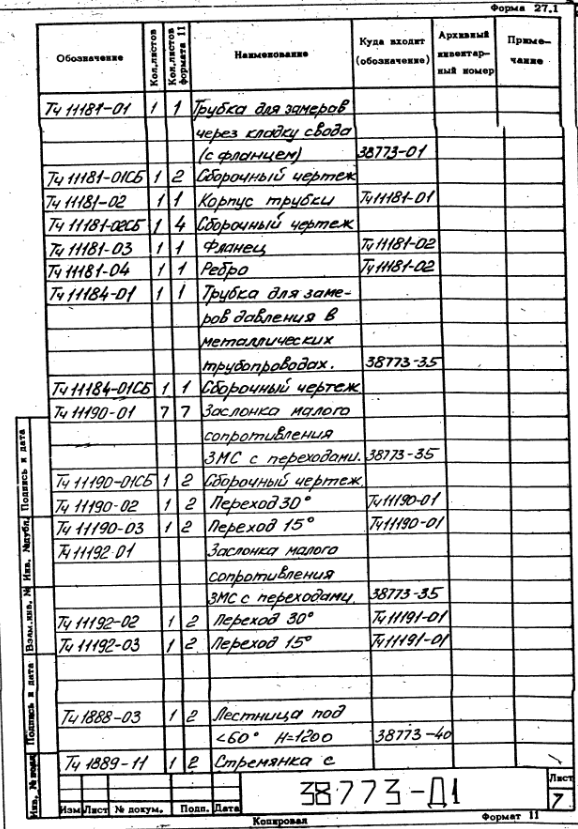 Форма 27.1
Обозначение Кол.листов Кол.листов формата 11 Наименование Куда входит (обозначение) Архивный инвентарный номер Примечание
Тч 11181-01 1 1 Трубка для замеров
через кладку свода
(с фланцем) 38773-01
Тч 11181-01СБ 1 2 Сборочный чертеж
Тч 11181-02 1 1 Корпус трубки Тч11181-01
Тч 11181-02СБ 1 4 Сборочный чертеж
Тч 11181-03 1 1 Фланец Тч11181-02
Тч 11181-04 1 1 Ребро Тч11181-02
Тч 11184-01 1 1 Трубка для заме-
ров давления в
металлических
трубопроводах. 38773-35
Тч 11184-01СБ 1 1 Сборочный чертеж
Тч 11190-01 7 7 Заслонка малого
сопротивления
ЗМС с переходами. 38773-35
Тч 11190-01СБ 1 2 Сборочный чертеж
Тч 11190-02 1 2 Переход 30° Тч11190-01
Тч 11190-03 1 2 Переход 15° Тч11190-01
Тч 11192-01 Заслонка малого
сопротивления
ЗМС с переходами. 38773-35
Тч 11192-02 1 2 Переход 30° Тч11191-01
Тч 11192-03 1 2 Переход 15° Тч11191-01
Тч 1888-03 1 2 Лестница под
<60° H=1200 38773-40
Тч 1889-11 1 2 Стремянка с
Инв. № подл Подпись и дата Взам.инв. № Инв. №дубл. Подпись и дата
Изм Лист № докум. Подп. Дата
38773-Д1
Лист
7
Копировал Формат 11